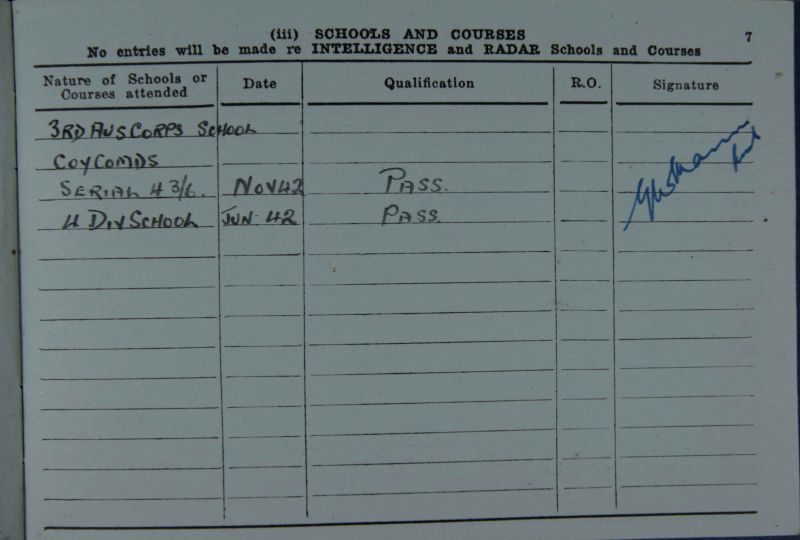 (iii) SCHOOLS AND COURSES 7
No entries will be made re INTELLIGENCE and RADAR Schools and Courses
Nature of Schools or Courses attended Date Qualification R.O. Signature
3RD AUS CORPS SCHOOL
COY COMDS
SERIAL 43/6. NOV 42 PASS.
4 DIV SCHOOL JUN 42 PASS.